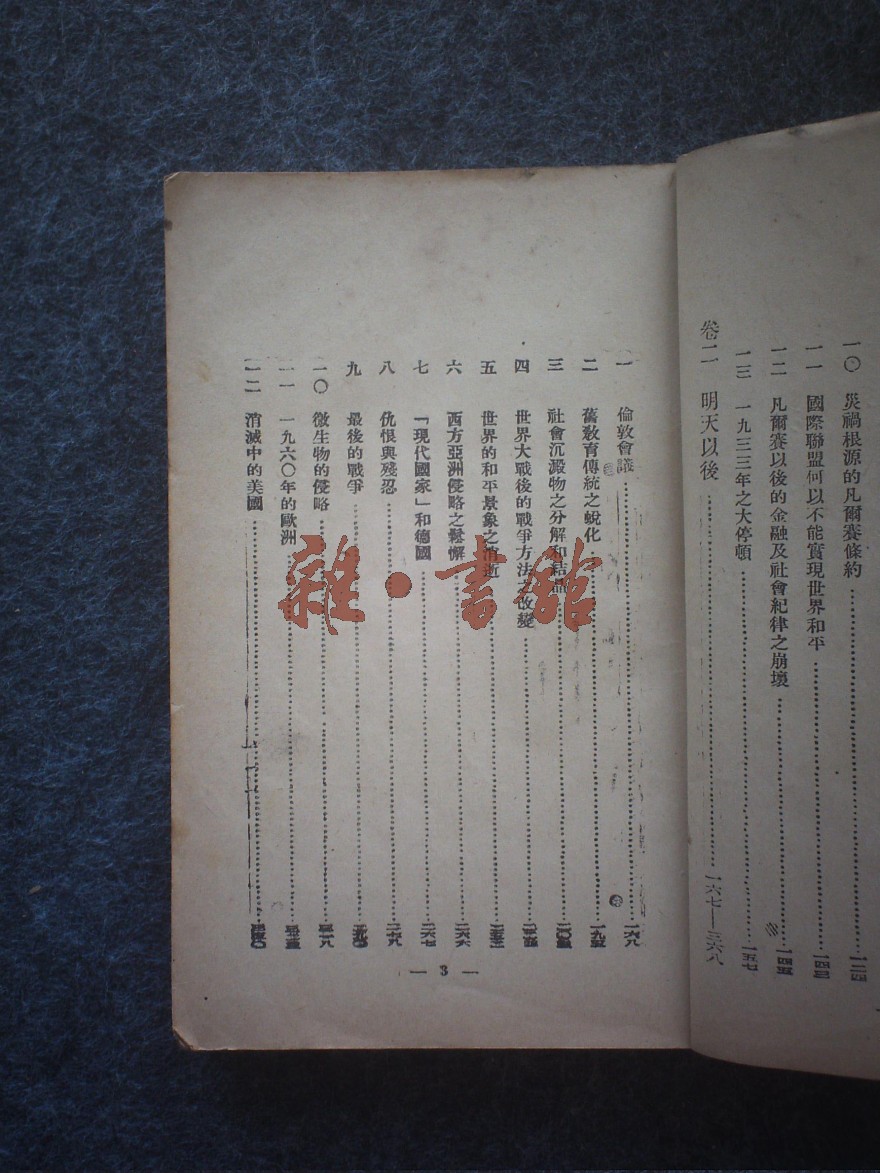 一〇 災禍根源的凡爾賽條約……一三四
一一 國際聯盟何以不能實現世界和平……一四三
一二 凡爾賽以後的金融及社會紀律之崩壞……一四五
一三 一九三三年之大停頓……一五七
卷二 明天以後……一六七—三六八
一 倫敦會議……一六八
二 舊教育傳統之蛻化
三 社會沉澱物之分解和結晶
四 世界大戰後的戰爭方法之改變
五 世界的和平景象之消逝
六 西方亞洲侵略之鬆懈
七 「現代國家」和德國……二六七
八 仇恨與殘忍
九 最後的戰爭
一〇 微生物的侵略
一一 一九六〇年的歐洲
一二 消滅中的美國
— 3 —
雜·書館